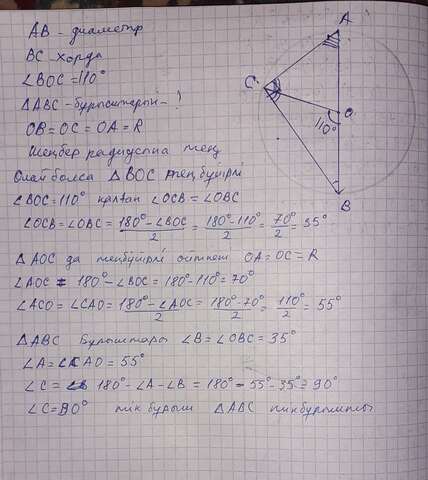 AB - диаметр
BC - хорда
∠BOC = 110°
△ABC - бұрыштарын - ?
OB = OC = OA = R
Шеңбер радиусына тең
Олай болса △BOC теңбүйірлі
∠BOC = 110° қалған ∠OCB = ∠OBC
∠OCB = ∠OBC = (180° - ∠BOC)/2 = (180° - 110°)/2 = 70°/2 = 35°
△AOC да теңбүйірлі өйткені OA = OC = R
∠AOC = 180° - ∠BOC = 180° - 110° = 70°
∠ACO = ∠CAO = (180° - ∠AOC)/2 = (180° - 70°)/2 = 110°/2 = 55°
△ABC бұрыштары ∠B = ∠OBC = 35°
∠A = ∠CAO = 55°
∠C = 180° - ∠A - ∠B = 180° - 55° - 35° = 90°
∠C = 90° тік бұрыш △ABC тікбұрышты
A
C
O
110°
B